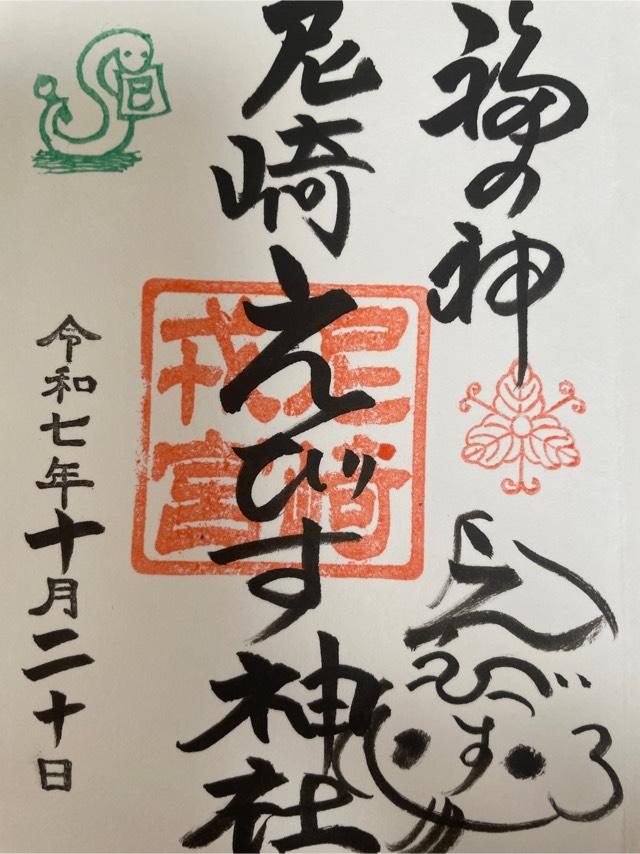 福の神
えびす
尼崎えびす神社
尼崎
戎宮
令和七年十月二十日